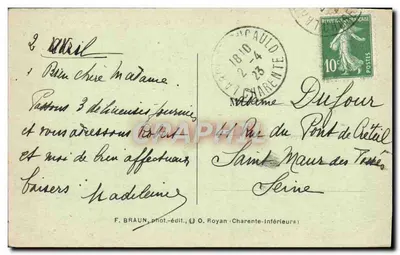 2 Avril
Bien chère Madame
Passons 3 délicieuses journées
et vous adressons
et moi de bien affectueux
baisers Madeleine
18 10
2 - 4
23
CHARENTE
10c
POSTES
Madame Dufour
Rue du Pont de Créteil
Saint Maur des Fossés
Seine
F. BRAUN, phot.-édit., O. Royan (Charente-Inférieure)